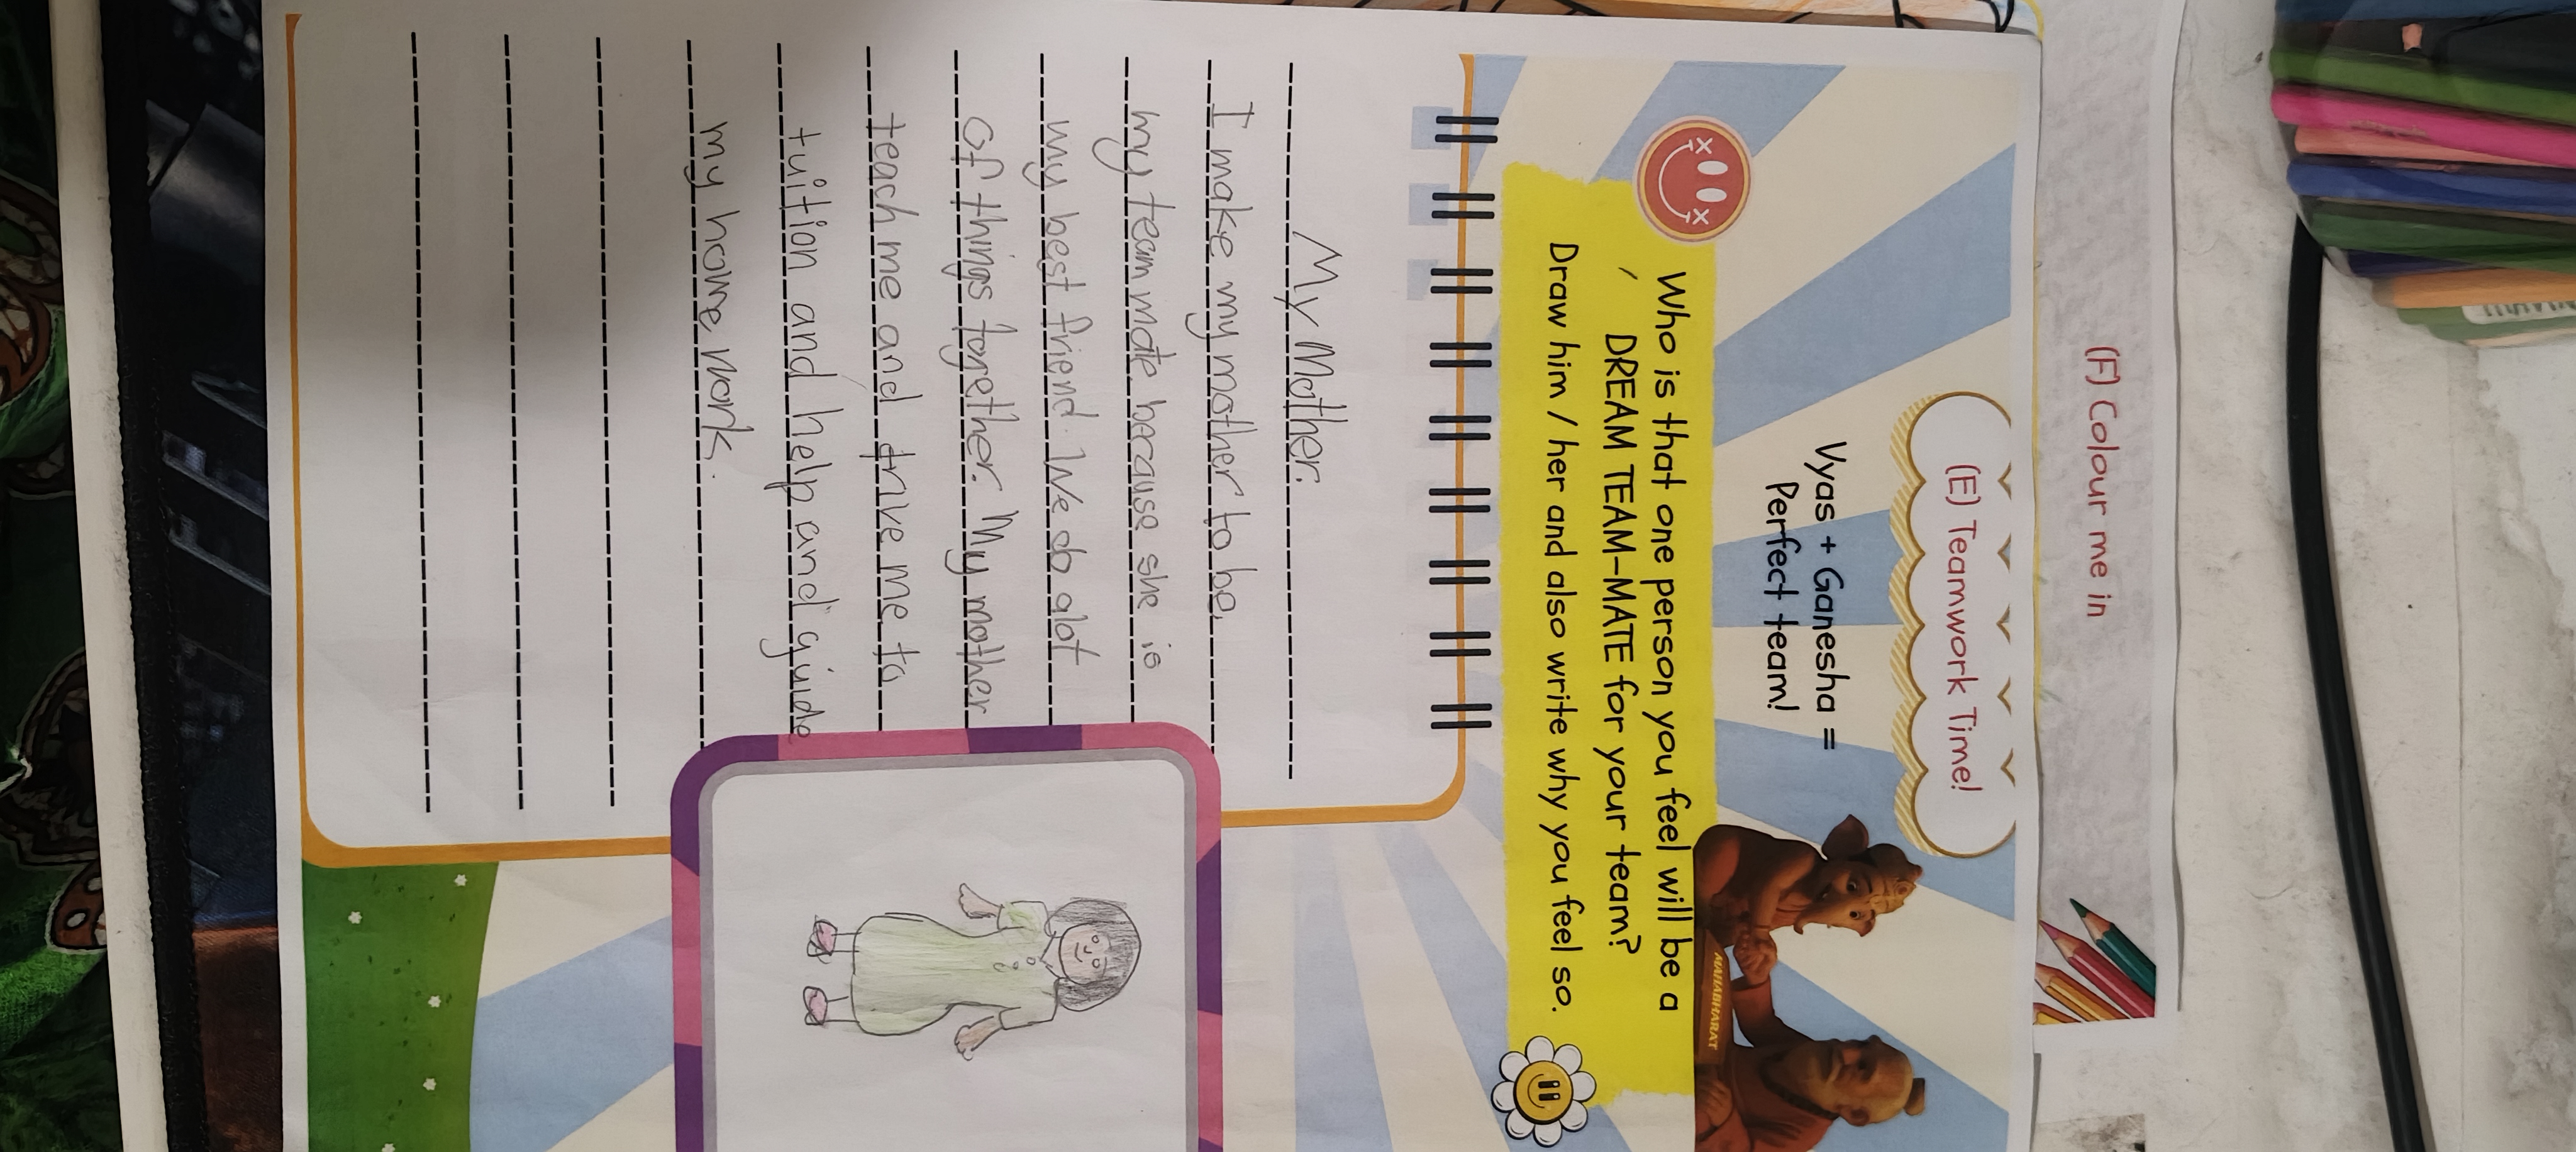 (F) Colour me in
(E) Teamwork Time!
Vyas + Ganesha =
Perfect team!
MAHABHARAT
Who is that one person you feel will be a
DREAM TEAM-MATE for your team?
Draw him / her and also write why you feel so.
My Mother.
I make my mother to be,
my team mate because she is
my best friend. We do alot
of things togrether. My mother
teach me and drive me to
tuition and help and guide
my home work.